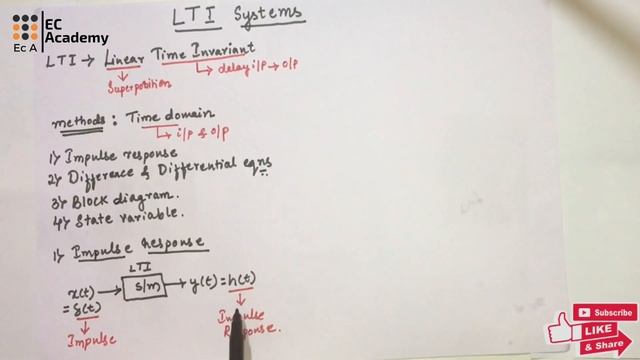 EC
Academy
EC A
LTI Systems
LTI → Linear Time Invariant
↳ delay i/p → o/p
Superposition
methods : Time domain
↳ i/p & o/p
1) Impulse response
2) Difference & Differential eqns
3) Block diagram.
4) State variable.
1) Impulse Response
LTI
x(t) → S/m → y(t) = h(t)
= δ(t)
Impulse
Impulse
Response.
Subscribe
LIKE
& Share